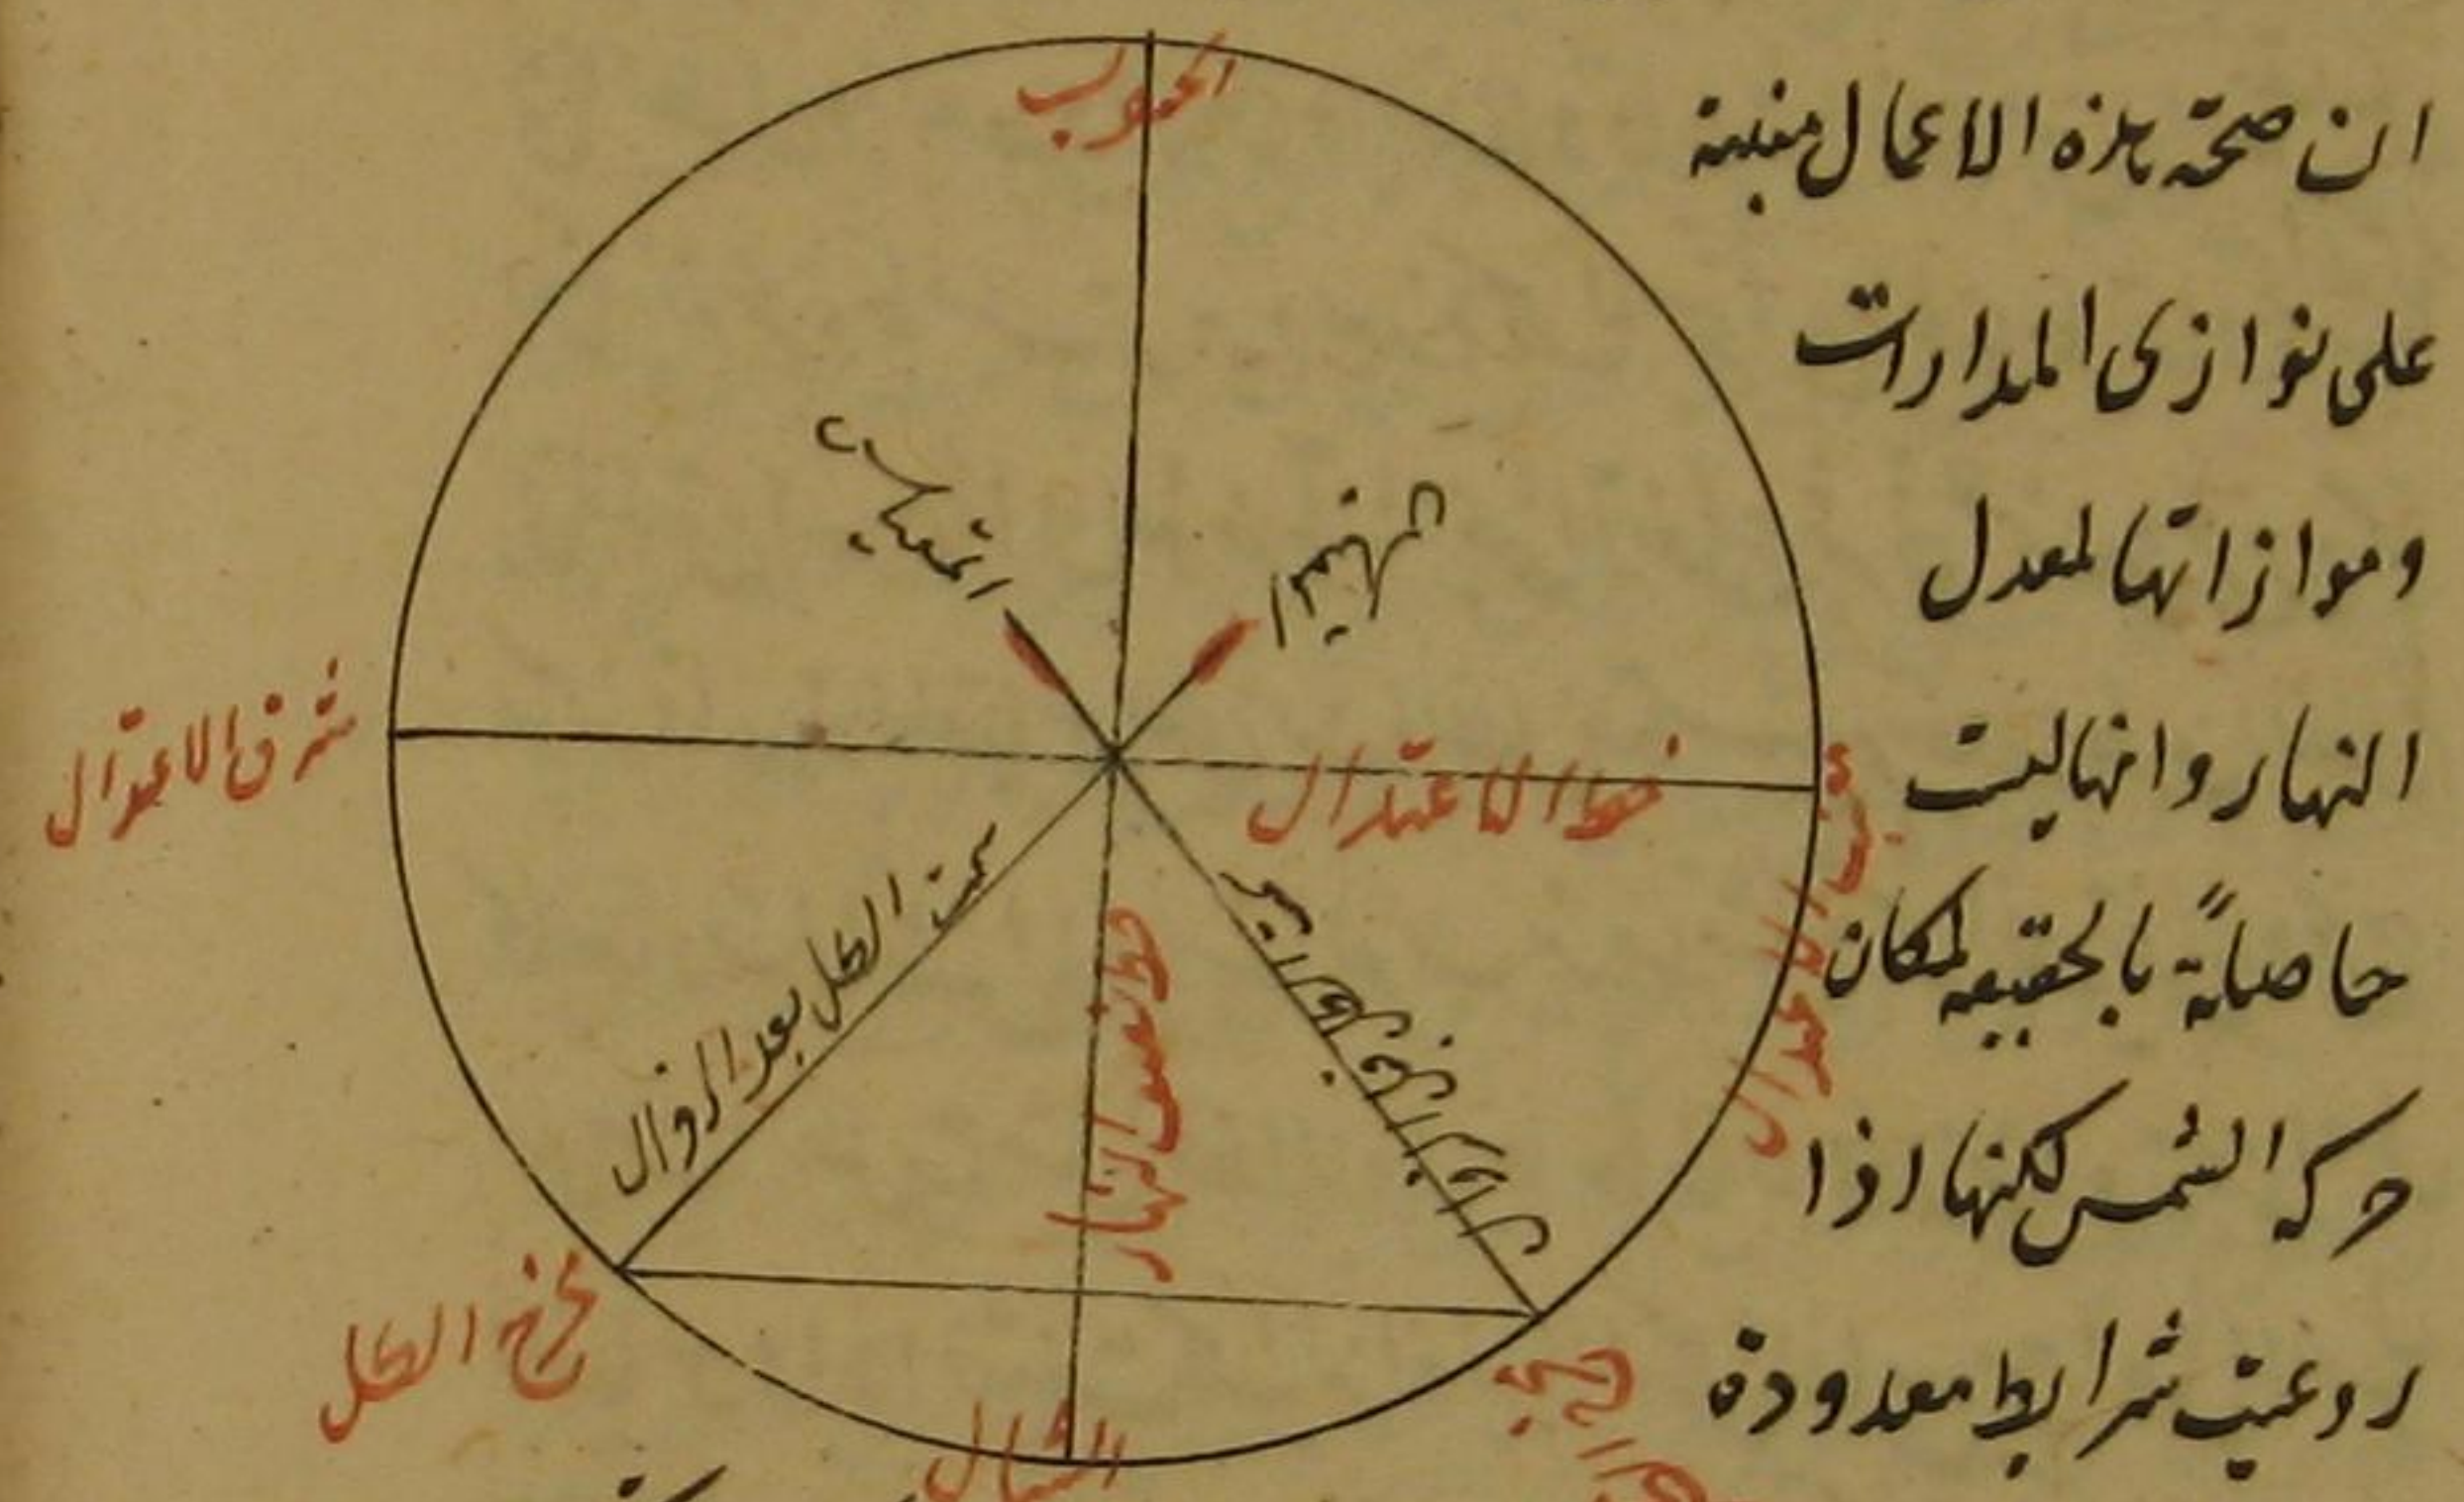 ان صحة هذه الاعمال مبنية
على توازى المدارات
وموازاتها لمعدل
النهار وانها ليست
حاصلة بالحقيقه لمكان
حركة الشمس لكنها اذا
روعيت شرايط معدودة
الجنوب
المقياس
شرق الاعتدال
خط الاعتدال
غرب الاعتدال
سمت الظل بعد الزوال
خط نصف النهار
سمت الظل قبل الزوال
مخرج الظل
الشمال